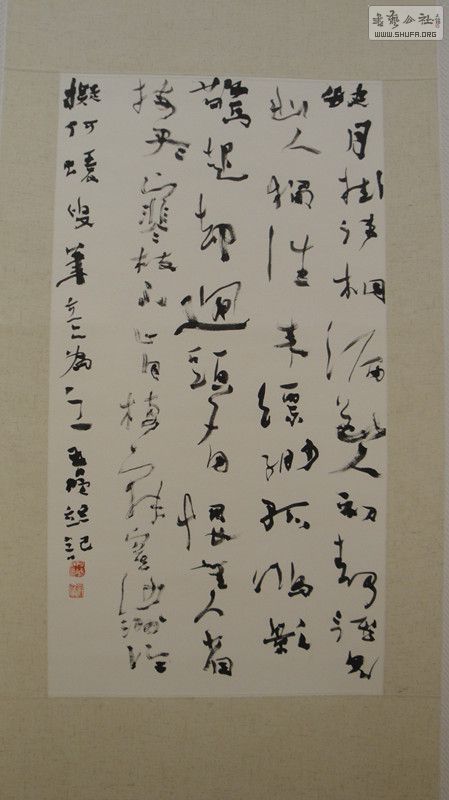 書藝公社
WWW.SHUFA.ORG
缺月掛疎桐漏斷人初靜誰見
幽人獨往來縹緲孤鴻影
驚起却迴頭有恨無人省
揀盡寒枝不肯棲寂寞沙洲冷
擬何蝯叟筆意為之